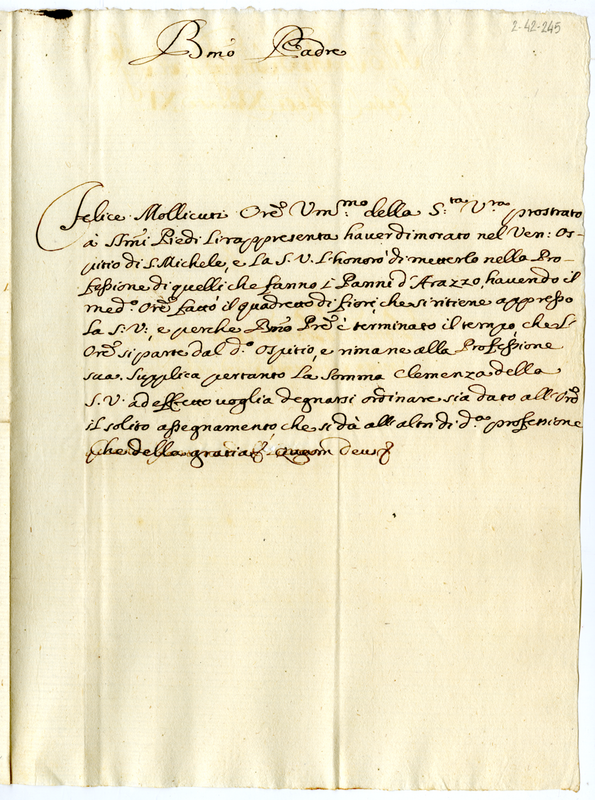 2-42-245
Bmo Padre
Felice Mollicuti Ore Ummo della S.ta V.ra prostrato
à SSmi Piedi Li rappresenta haver dimorato nel Ven: Os-
pitio di S. Michele, e La S. V. L'honorò di metterlo nella Pro-
fessione di quelli che fanno i Panni d'Arazzo, havendo il
med.o Ore fatto il quadretto di fiori, che si ritiene appresso
La S: V:, e perche Bmo Pre è terminato il tempo, che L'
Ore si parte dal d.o Ospitio, e rimane alla Professione
sua. Supplica pertanto La Somma Clemenza della
S. V. ad effetto voglia degnarsi ordinare sia dato all'Ore
il solito assegnamento che si dà all'altri di d.a professione
che della gratia Quam Deus